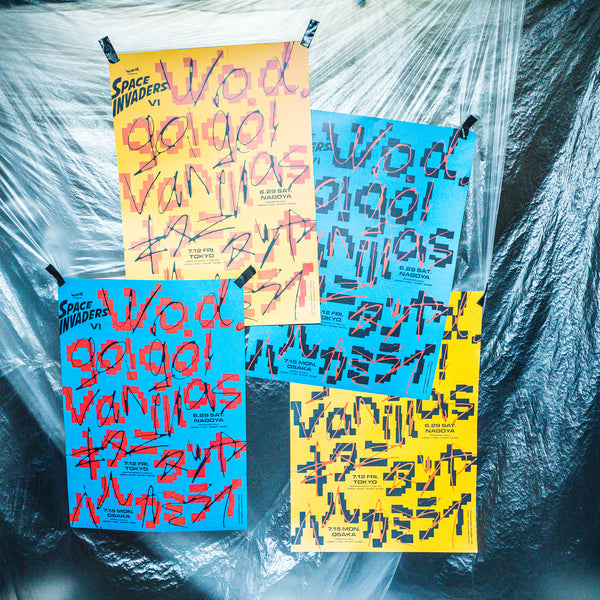 SPACE
INVADERS
VI
w.o.d.
go!go!
vanillas
6.29 SAT.
NAGOYA
キタニタツヤ
7.12 FRI.
TOKYO
VI
w.o.d.
go!go!
vanillas
6.29 SAT.
NAGOYA
タツヤ
7.12 FRI.
TOKYO
ハルカミライ
7.15 MON.
OSAKA
SPACE
INVADERS
VI
w.o.d.
go!go!
vanillas
6.29 SAT.
NAGOYA
キタニタツヤ
7.12 FRI.
TOKYO
ハルカミライ
7.15 MON.
OSAKA
vanillas
6.29 SAT.
NAGOYA
キタニタツヤ
7.12 FRI.
TOKYO
ハルカミライ
7.15 MON.
OSAKA